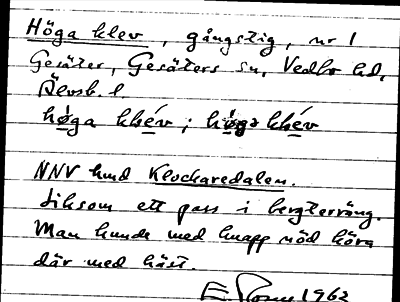 Höga klev, gångstig, nr 1
Gesäter, Gesäters sn, Vedbo hd,
Älvsb. l
höga klev; höga klev
NNV hmd Klockaredalen.
Liksom ett pass i bergterräng.
Man kunde med knapp nöd köra
där med häst.
1962